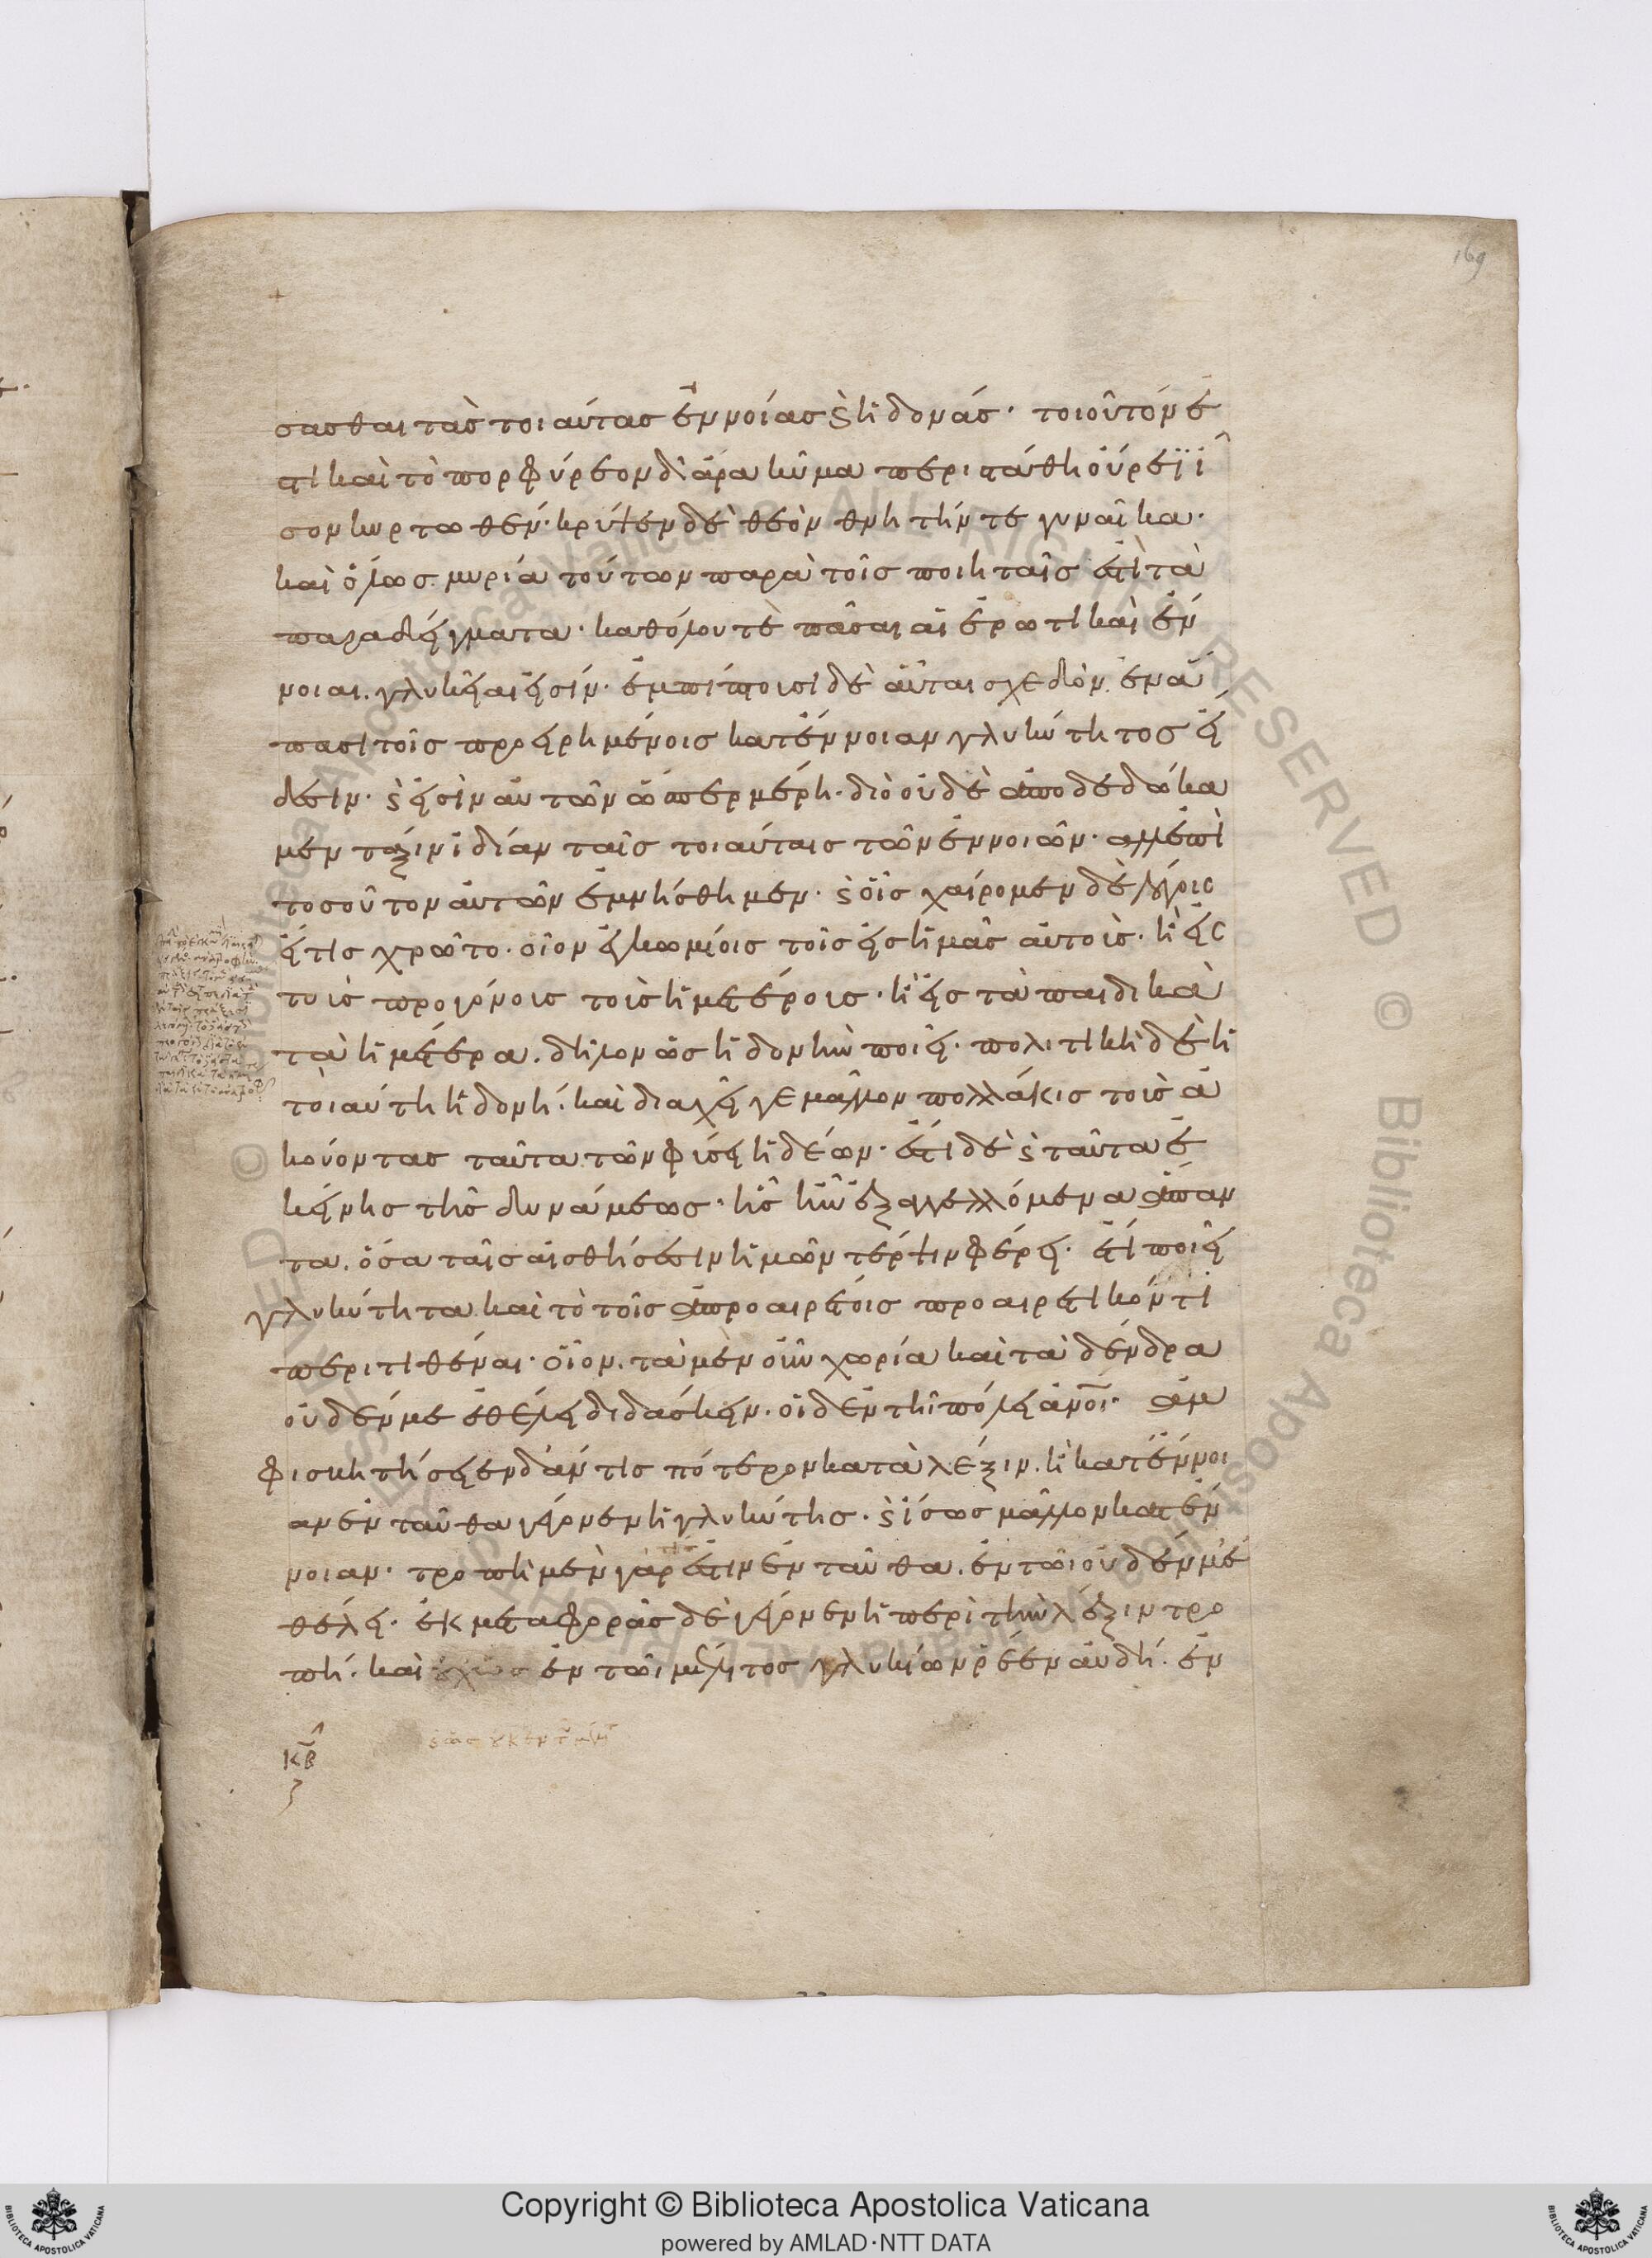 169
σασθαι τὰς τοιαύτας ἐννοίας ϗ ἡδονάς· τοιοῦτόν ἐ
στι καὶ τὸ πορφύρεον δ' ἄρα κῦμα περιστάθη οὔρεϊ ἶ
σον κυρτωθέν· κρύψεν δὲ θεὸν θνητήν τε γυναῖκα·
καὶ ὅλως μυρία τούτων παρὰ τοῖς ποιηταῖς ἐστὶ τὰ
παραδείγματα· καθόλου τὲ πᾶσαι αἱ ἐρωτικαὶ ἔν
νοιαι. γλυκεῖαι εἰσίν· ἐμπίπτουσι δὲ αὗται σχεδὸν ἐν ἅ
πασι τοῖς προειρημένοις κατ' ἔννοιαν γλυκύτητος εἴ
δεσιν· ϗ εἰσὶν αὐτῶν ὥσπερ μέρη· διὸ οὐδὲ ἀποδεδώκα
μεν τάξιν ἰδίαν ταῖς τοιαύταις τῶν ἐννοιῶν· ἀλλ' ἐπὶ
τοσοῦτον αὐτῶν ἐμνήσθημεν· ϗ οἷς χαίρομεν δὲ λόγοις
εἴ τις χρῶτο· οἷον ἐγκωμίοις τοῖς εἰς ἡμᾶς αὐτοὺς· ἢ εἰς
τοὺς προγόνους τοὺς ἡμετέρους· ἢ εἰς τὰ παιδικὰ
τὰ ἡμέτερα. δῆλον ὡς ἡδονὴν ποιεῖ· πολιτικὴ δὲ ἡ
τοιαύτη ἡδονή. καὶ διαχεῖ γε μᾶλλον πολλάκις τοὺς ἀ
κούοντας ταῦτα τῶν φύσει ἡδέων· ἔστι δὲ ϗ ταῦτα ἐ
κείνης τῆς δυνάμεως· ἧς ἦν ἐξαγγελλόμενα ἅπαν
τα. ὅσα ταῖς αἰσθήσεσιν ἡμῶν τέρψιν φέρει· ἔτι ποιεῖ
γλυκύτητα καὶ τὸ τοῖς ἀπροαιρέτοις προαιρετικόν τι
περιτιθέναι· οἷον. τὰ μὲν οὖν χωρία καὶ τὰ δένδρα
οὐδέν με ἐθέλει διδάσκειν· οἱ δ' ἐν τῇ πόλει ἄνοι· ἀμ
φισβητήσειεν δ' ἄν τις πότερον κατὰ λέξιν. ἢ κατ' ἔννοι
αν ἐνταῦθα γέγονεν ἡ γλυκύτης· ϗ ἴσως μᾶλλον κατ' ἔν
νοιαν· τροπὴ μὲν γάρ ἐστιν ἐνταῦθα. ἐν τῶι οὐδέν μ' ἐ
θέλει· ἐκ μεταφορᾶς δὲ γέγονεν ἡ περὶ τὴν λέξιν τρο
πή. καὶ ἐν τῶι μέλιτος γλυκίων ῥέεν αὐδή· ἐν
κβ